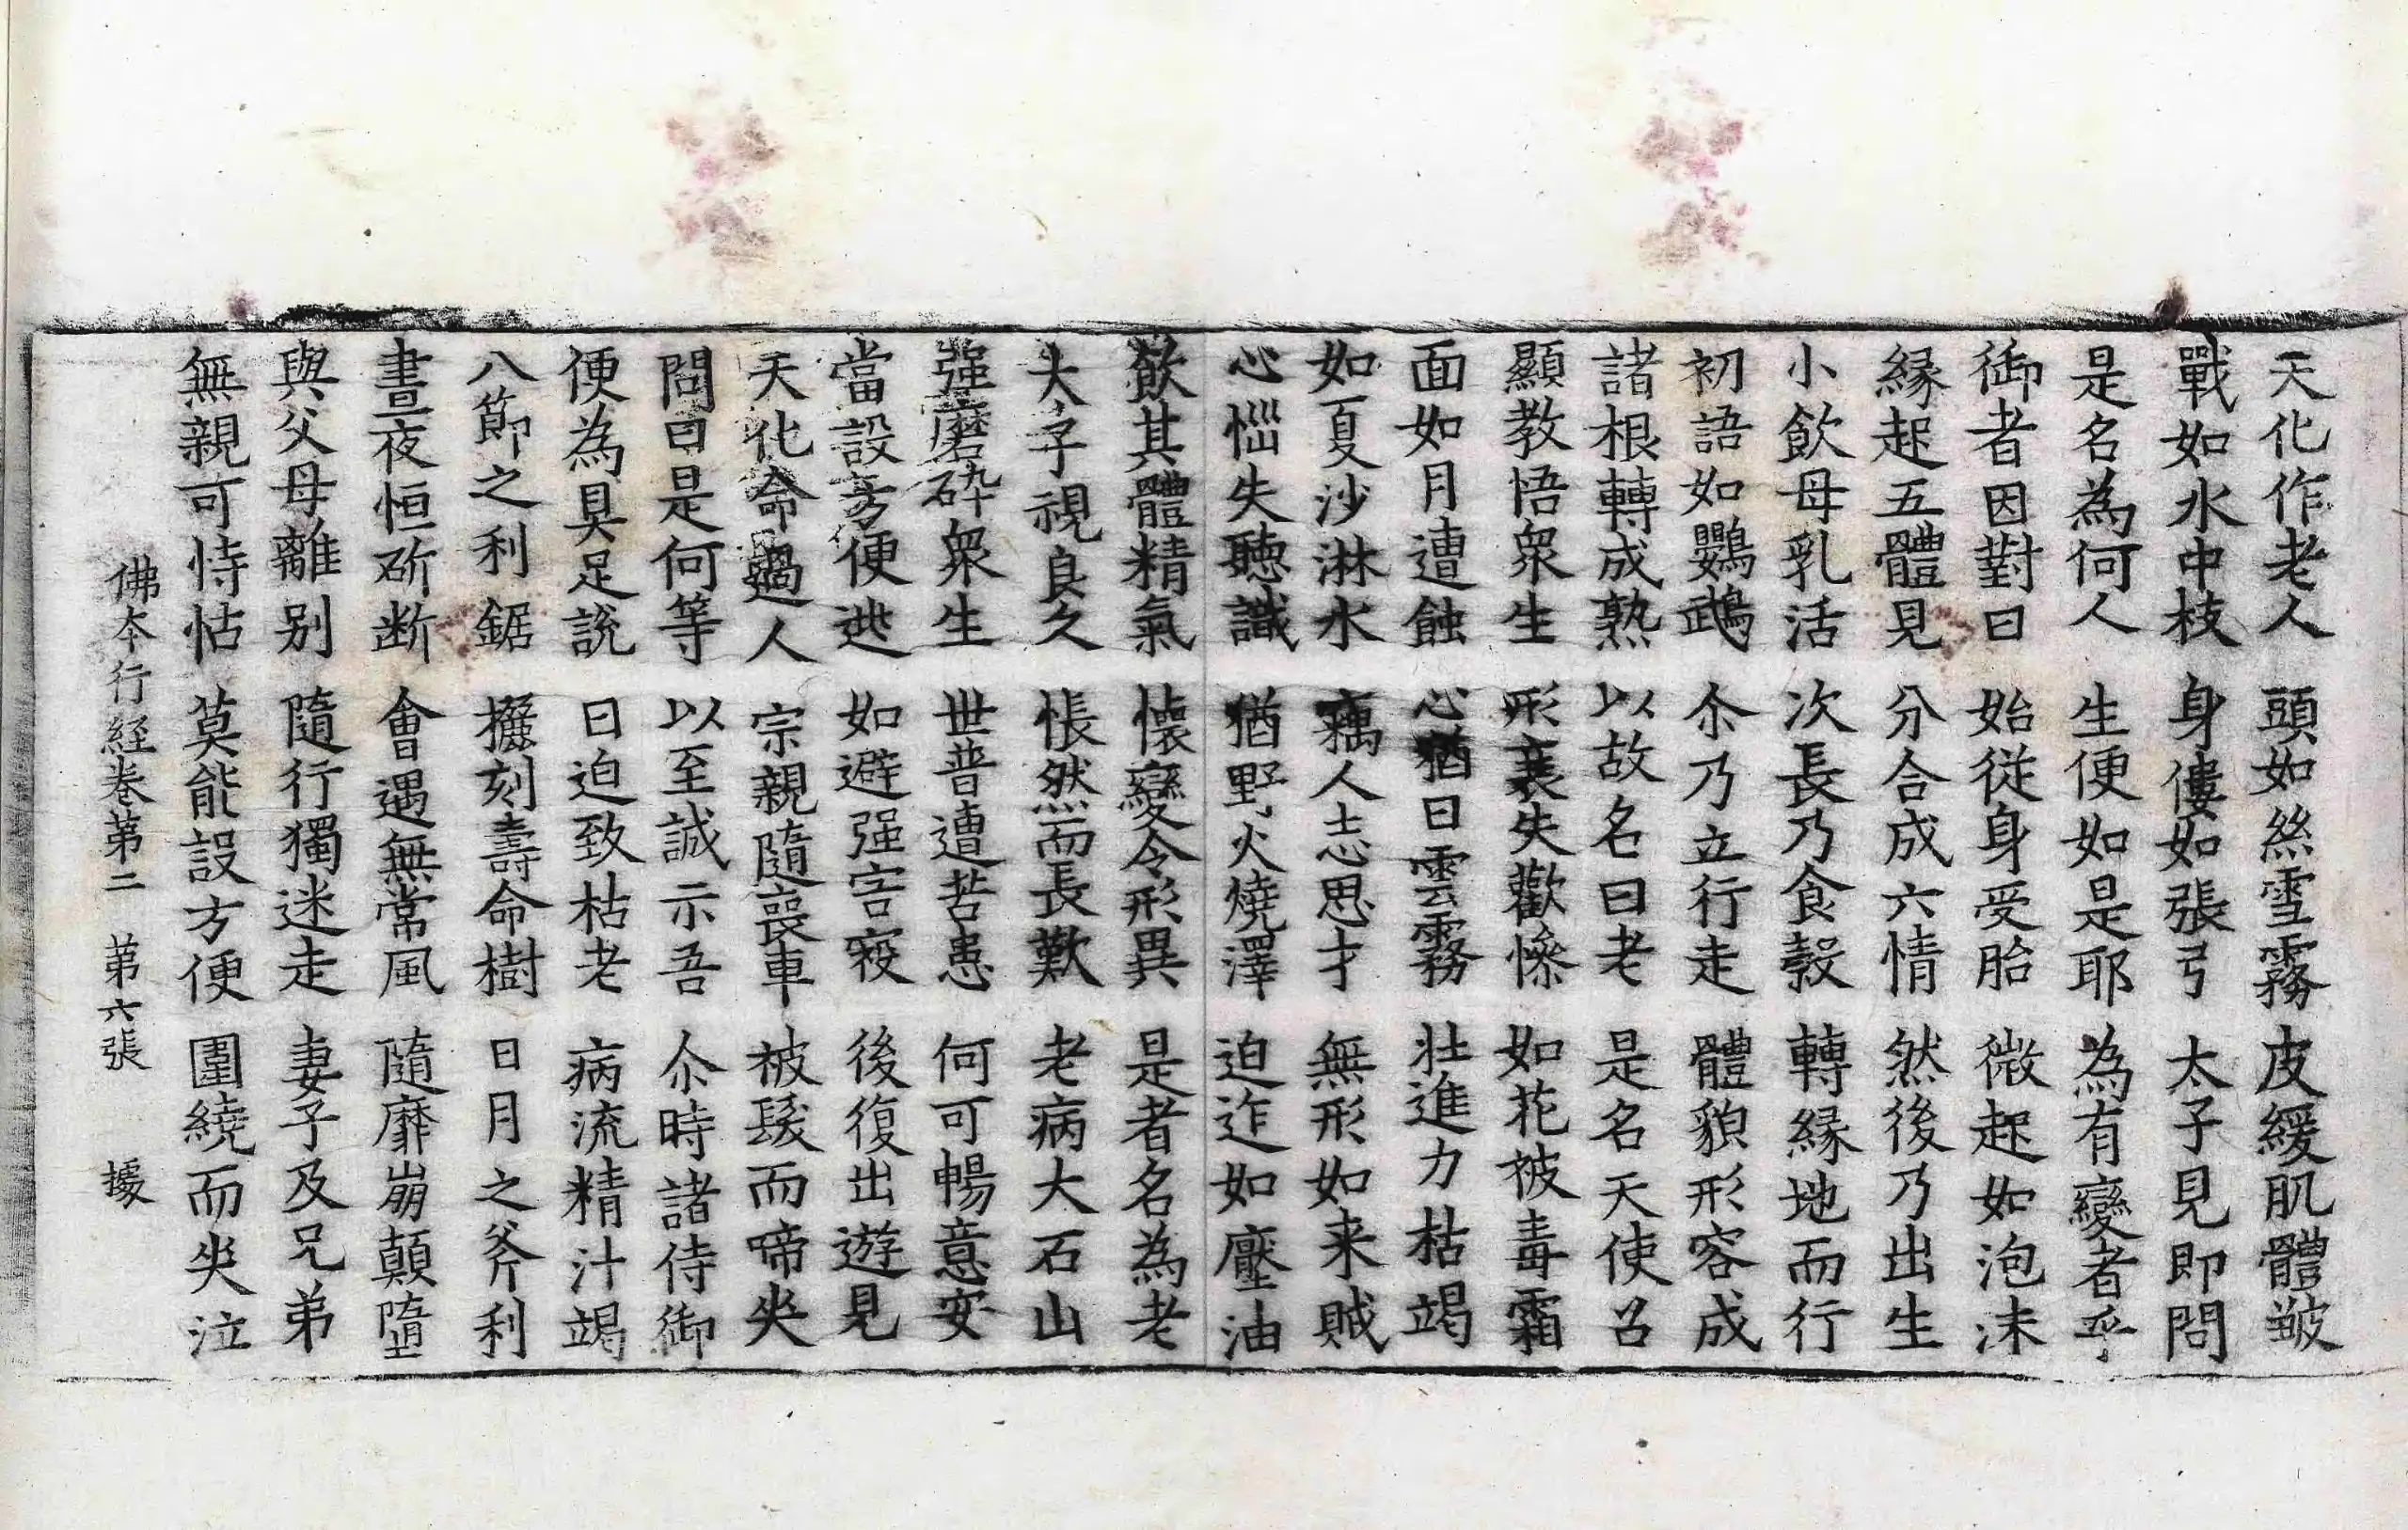 天化作老人 頭如絲雪霧 皮緩肌體皺
戰如水中枝 身僂如張弓 太子見即問
是名為何人 生便如是耶 為有變者乎
御者因對曰 始從身受胎 微起如泡沫
緣起五體見 分合成六情 然後乃出生
小飲母乳活 次長乃食穀 轉緣地而行
初語如鸚鵡 尒乃立行走 體貌形容成
諸根轉成熟 以故名曰老 是名天使召
顯教悟眾生 形衰失歡慘 如花被毒霜
面如月遭蝕 心猶日雲霧 壯進力枯竭
如夏沙淋水 竊人志思才 無形如来賊
心惱失聽識 猶野火燒澤 迫迮如壓油
飲其體精氣 懷變令形異 是者名為老
太子視良久 悵然而長歎 老病大石山
强磨碎眾生 世普遭苦患 何可暢意安
當設方便逃 如避强害疫 後復出遊見
天化命過人 宗親隨喪車 被髮而啼哭
問曰是何等 以至誠示吾 尒時諸侍御
便為具足說 日迫致枯老 病流精汁竭
八節之利鋸 㩻刻壽命樹 日月之斧利
晝夜恒斫断 會遇無常風 隨靡崩顛墮
與父母離别 隨行獨迷走 妻子及兄弟
無親可恃怙 莫能設方便 圍繞而哭泣
佛本行経卷第二 第六張 據